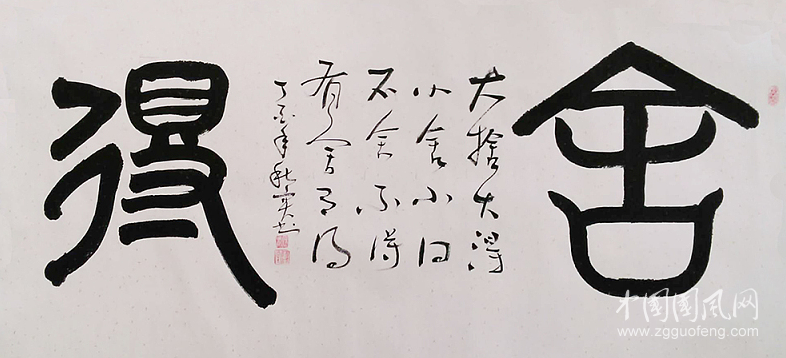 舍
大捨大得
小舍小得
不舍不得
有舍有得
丁酉年秋
得
中国国风网
www.zgguofeng.com